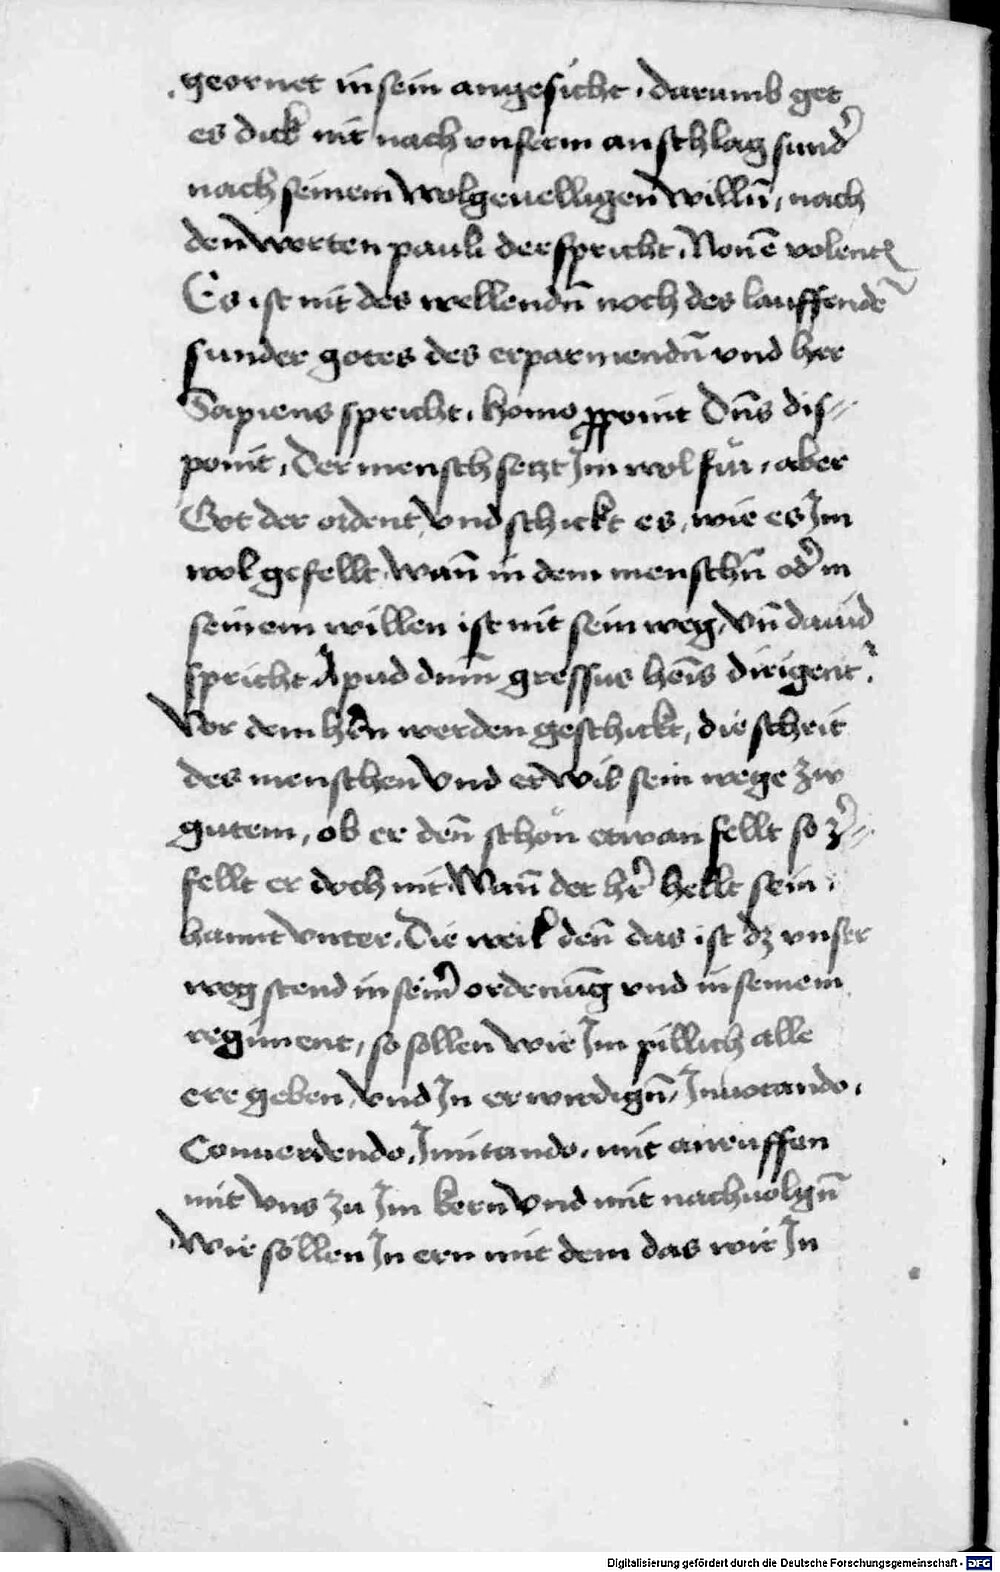 geornet in sein angesicht . darumb get
es dick nit nach vnserm anschlag sund̕
nach seinem wolgeuelligen willn̄, nach
den worten pauli der spricht . Non ē volent
Es ist nit des wellendn̄ noch des lauffendē
sunder gotes des erparmendn̄ vnd her
Sapiens spricht . homo ꝓponit Dn̄s dis⸗
ponit , Der mensch setzt Jm wol für , aber
Got der ordent vnd schickt es , wie es Jm
wol gefellt . Wan̄ in dem menschn̄ od̕ in
seinem willen ist nit sein weg , Vn̄ dauid
spricht Apud dnm̄ gressus hoīs dirigent᷑ .
Vor dem hern werden geschickt , die schrit
des menschen vnd er wil sein wege zw
gutem , ob er den̄ schon etwan fellt so z̕⸗
fellt er doch nit . Wan̄ der hr̄ hellt sein
hannt vnter . Die weil den̄ das ist dz vnser
weg stend in sein̕ ordenūg vnd in seinem
regiment , so sollen wir Jm pillich alle
ere geben , vnd Jn erwirdign̄ , Jnuocando .
Conuerdendo . Jmitando . mit anruffen
mit vns zu Jm kern vnd mit nachuolgn̄
Wir sollen Jn ern mit dem das wir Jn
Digitalisierung gefördert durch die Deutsche Forschungsgemeinschaft - DFG